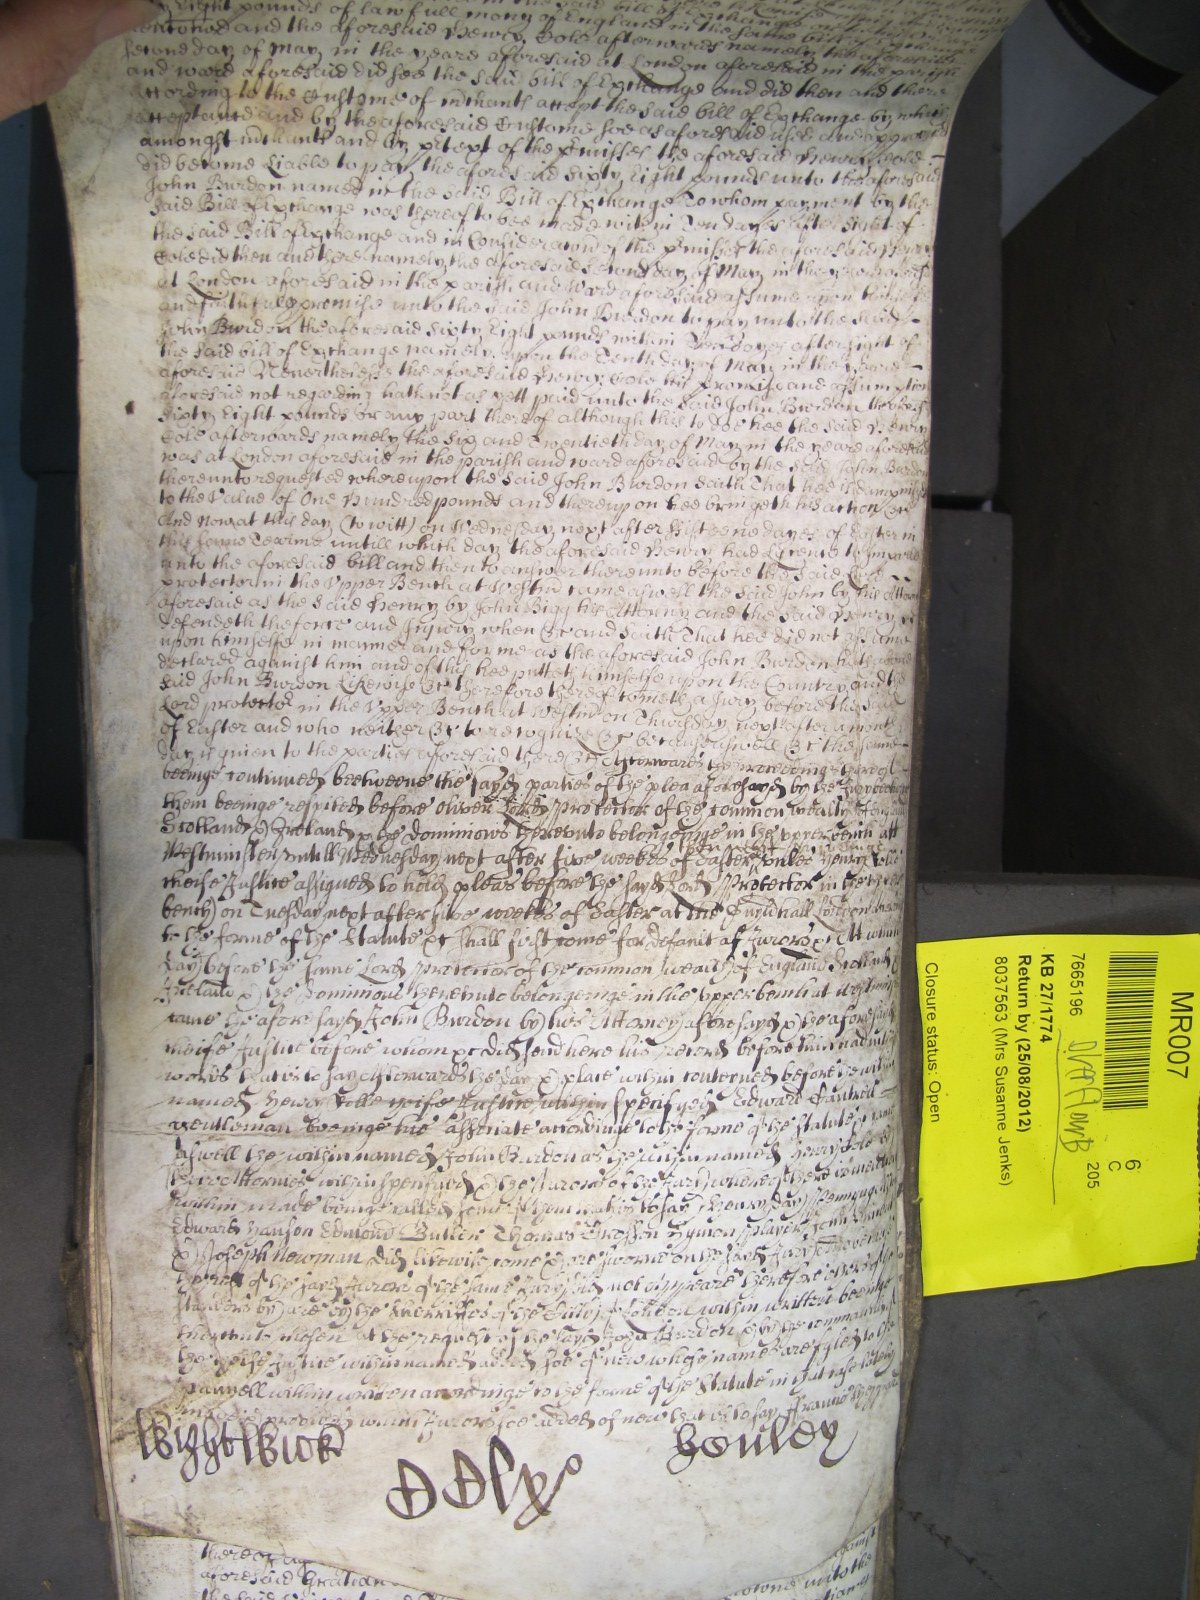 Eight pounds of lawfull mony of England in the same bill of Exchange
mentioned and the aforesaid Henry Cole afterwards namely the aforesaid
second day of May in the yeare aforesaid at London aforesaid in the parish
and ward aforesaid did see the said bill of Exchange and did then and there
according to the Custome of mchants accept the said bill of Exchange by which
acceptance and by the aforesaid Custome soe as aforesaid used and approved
amongst mchants and by ptext of the pmisses the aforesaid Henry Cole
did become Liable to pay the aforesaid sixty Eight pounds unto the aforesaid
John Burdon named in the said Bill of Exchange To whom payment by the
said Bill of Exchange was thereof to bee made within Ten dayes after sight of
the said Bill of Exchange and in Consideracon of the pmisses the aforesaid Henry
Cole did then and there namely the aforesaid second day of May in the yeare aforesaid
at London aforesaid in the parish and Ward aforesaid assume upon himselfe
and faithfully promise unto the said John Burdon to pay unto the said
John Burdon the aforesaid sixty Eight pounds within Ten dayes after sight of
the said bill of Exchange namely upon the Tenth day of May in the yeare
aforesaid Neverthelesse the aforesaid Henry Cole his promise and assumption
aforesaid not regarding hath not as yett paid unto the said John Burdon the aforesaid
sixty Eight pounds or any part thereof although this to doe hee the said Henry
Cole afterwards namely the six and Twentieth day of May in the yeare aforesaid
was at London aforesaid in the parish and ward aforesaid by the said John Burdon
thereunto requested whereupon the said John Burdon saith That hee is
to the Value of One Hundred pounds and thereupon hee bringeth his action &c
And now at this day (to witt) on Wednesday next after fifteene dayes of Easter in
this same Tearme untill which day the aforesaid Henry had Licence to imparle
unto the aforesaid bill and then to answer thereunto before the said Lord
protector in the Upper Bench at Westm came aswell the said John by his Attorny
aforesaid as the said Henry by John Bigg his Attorny and the said Henry
defendeth the force and Injury when &c and saith That hee did not assume
upon himselfe in manner and forme as the aforesaid John Burdon hath above
declared against him and of this hee putteth himselfe upon the Country and the
said John Burdon Likewise &c therefore thereof cometh a Jury before the said
Lord protector in the Upper Bench at Westm on Thursday next after a moneth
of Easter and who neither &c to recognize &c because aswell &c the same
day is given to the parties aforesaid there &c Afterwards the proceedings thereof
beeinge continued betweene the sayd parties of the plea aforesayd by the Jury
them beeinge respited before Oliver Lord Protector of the common wealth of England
Scotland & Ireland & the dominions thereunto belonginge in the upper bench att
Westminster untill Wednesday next after five weekes of Easter unles Henry Rolle
cheife Justice assigned to hold pleas before the sayd Lord Protector in the upper
bench) on Tuesday next after five weekes of Easter at the Guyldhall London
to the forme of the Statute &c shall first come for default of Jurors &c Att which
day before the same Lord Protector of the common wealth of England Scotland &
Ireland & the dominions thereunto belonginge in the upper bench at Westminster
came the aforesayd John Burdon by his Attorney aforesayd & the aforesayd
cheife Justice before whom &c did send here his record before him had in these
words that is to say Afterwards the day & place within conteined before the within
named Henry Rolle cheife Justice within specifyed Edward
gentleman beeinge his associate accordinge to the forme of the Statute &c came
aswell the within named John Burdon as the within named Henry Cole by
their Attornies within specifyed & the Jurors of the Jury whereof there is mention
within made being called some of them that is to say Henry Day
Edward Hanson Edmond Butler Thomas Symon Player John
& Joseph Newman did likewise come & are sworne on the sayd Jury &
the rest of the sayd Jurors of the same Jury did not appeare therefore others of the
standers by are by the Sherriffes of the Citty of London within written beeinge
thereunto chosen at the request of the sayd John Burdon & by the command of
the cheife Justice within named added soe of new whose names are fyled to the
pannell within written accordinge to the forme of the Statute in that case lately
made & provided which Jurors soe added of new that is to say Francis
Wightwick
Houley
MR007
6
C
7665196
205
KB 27/1774
Return by (25/08/2012)
8037563 (Mrs Susanne Jenks)
Closure status: Open
thereof
aforesaid Gratian
the said